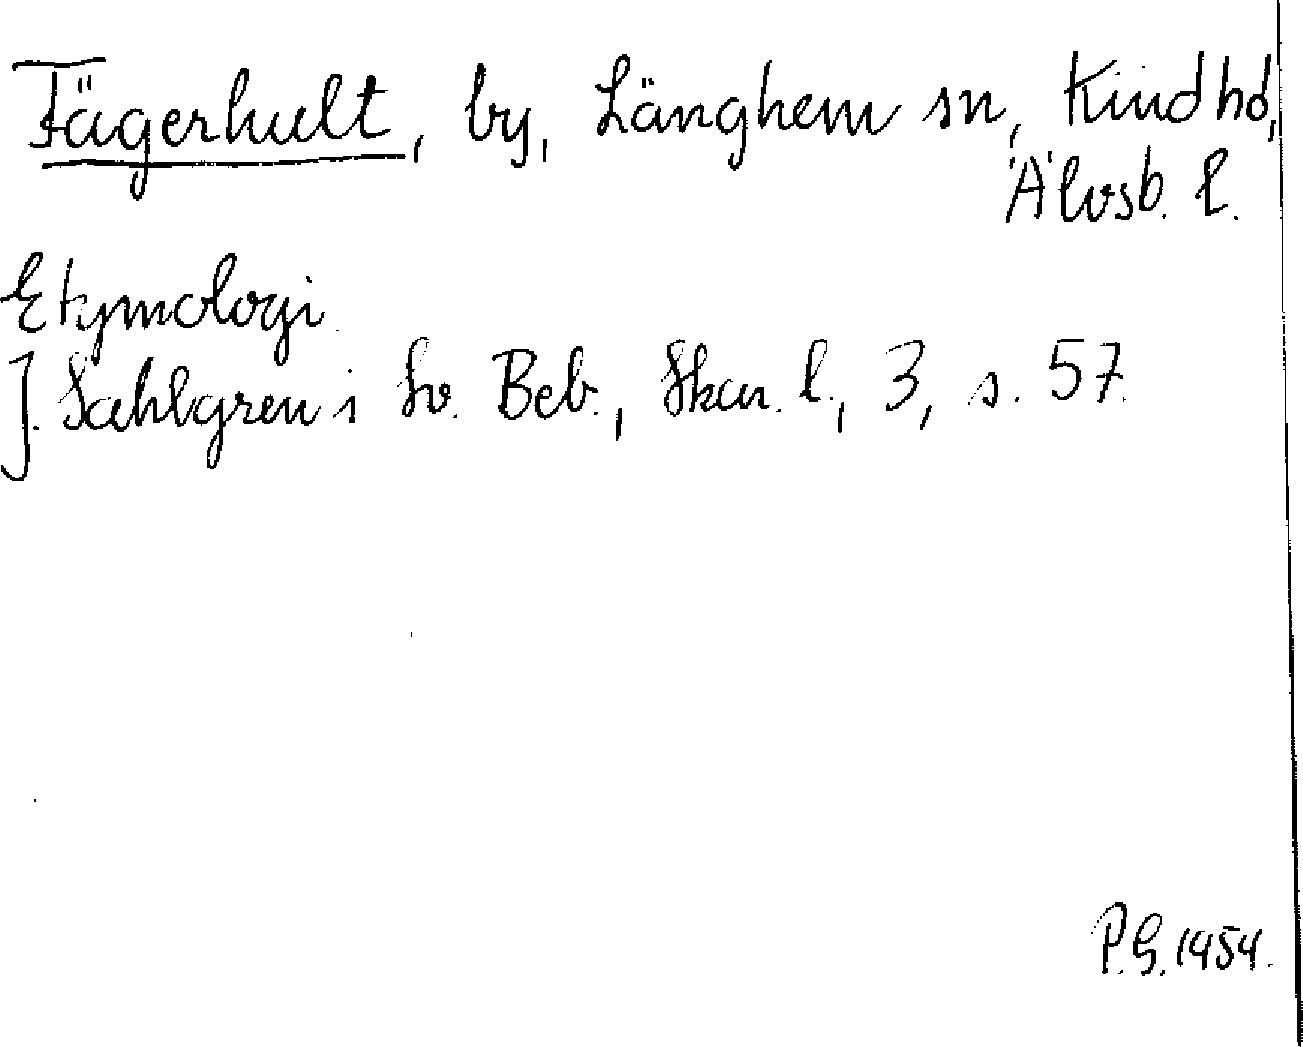 Fägerhult, by, Länghem sn, Kind hd,
Älvsb. l.
Etymologi
J. Sahlgren i Sv. Beb., Skar. l., 3, s. 57.
P.G. 1954.